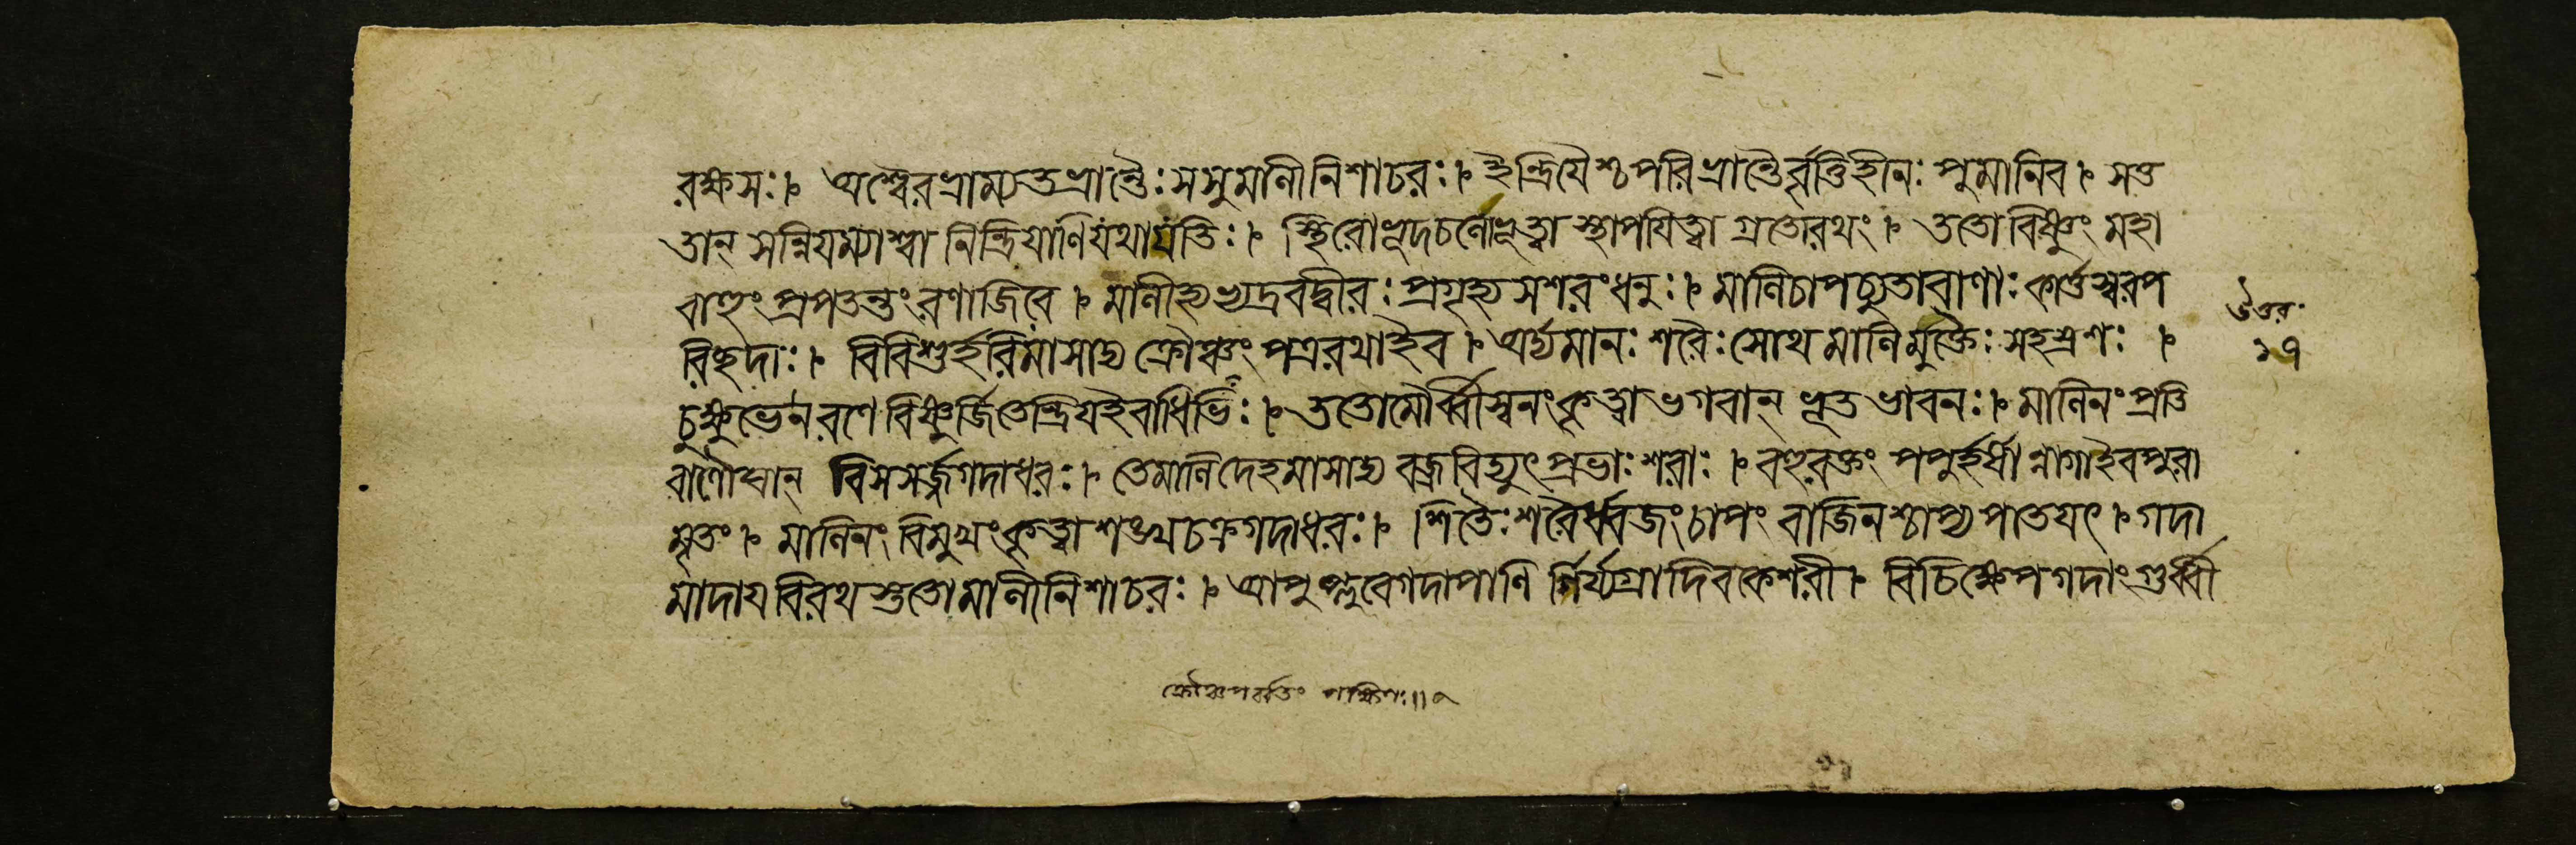 রক্ষসঃ। অশ্বৈরভ্রাম্যতভ্রান্তৈঃসসুমালীনিশাচরঃ। ইন্দ্রিযৈশ্চপরিভ্রান্তৈর্বৃত্তিহীনঃ পুমানিব। সত
তান্ সন্নিযম্যাশ্বা নিন্দ্রিযাণিযথাযতিঃ। স্থিরোভূদচলোভূত্বা স্থাপযিত্বা গ্রতোরথং। ততো বিষ্ণুং মহা
বাহুং প্রপতন্তং রণাজিরে। মালীহ্যভ্যদ্রবদ্বীরঃ প্রগৃহ্য সশরং ধনুঃ। মালিচাপচ্যুতাবাণাঃ কার্ত্তস্বরপ
রিছদাঃ। বিবিশুর্হরিমাসাদ্য ক্রৌঞ্চং পত্ররথাইব। অর্দ্যমানঃ শরৈঃ সোথ মালিমুক্তৈঃ সহস্রশঃ ।
চুক্ষুভেনরণে বিষ্ণুর্জিতেন্দ্রিযইবাধিভিঃ। ততোমৌর্ব্বীস্বনংকৃত্বা ভগবান্ ভূত ভাবনঃ। মালিনং প্রতি
বাণৌঘান্ বিসসর্জ্জগদাধরঃ। তেমালিদেহমাসাদ্য বজ্রবিদ্যুৎপ্রভাঃ শরাঃ । বহুরক্তং পপুর্হর্ষা ন্নাগাইবপুরা
মৃতং। মালিনং বিমুখং কৃত্বা শঙ্খচক্রগদাধরঃ। শিতৈঃ শরৈর্ধ্বজং চাপং বাজিনশ্চাপ্য পাতযৎ। গদা
মাদায বিরথ স্ততোমালীনিশাচরঃ। আপুপ্লুবেগদাপাণি র্গির্য্যগ্রাদিবকেশরী। বিচিক্ষেপ গদাং গুর্ব্বী
উত্তর
১৭
ক্রৌঞ্চপর্ব্বতং পক্ষিণঃ॥